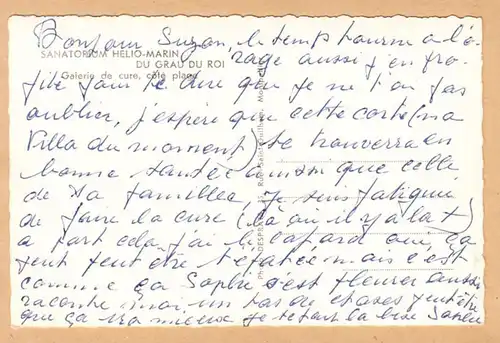 Bonjour Suzan, le temps tourne à l'o-
SANATORIUM HELIO-MARIN
DU GRAU DU ROI
rage aussi j'en pro-
Galerie de cure, côté plage
fite pour te dire que je ne t'ai pas
oublier, j'espère que cette carte (ma
villa du moment) te trouvera en
bonne santée ainsi que celle
de ta famillee, je suis fatiguée
de faire la cure (là où il y a la x)
a part cela j'ai le cafard oui, ça
peut peut être t'épatée mais c'est
comme ça Sophie s'est pleurer aussi
raconte moi un tas de choses peut être
que ça ira mieux je te fait la bise Sophie